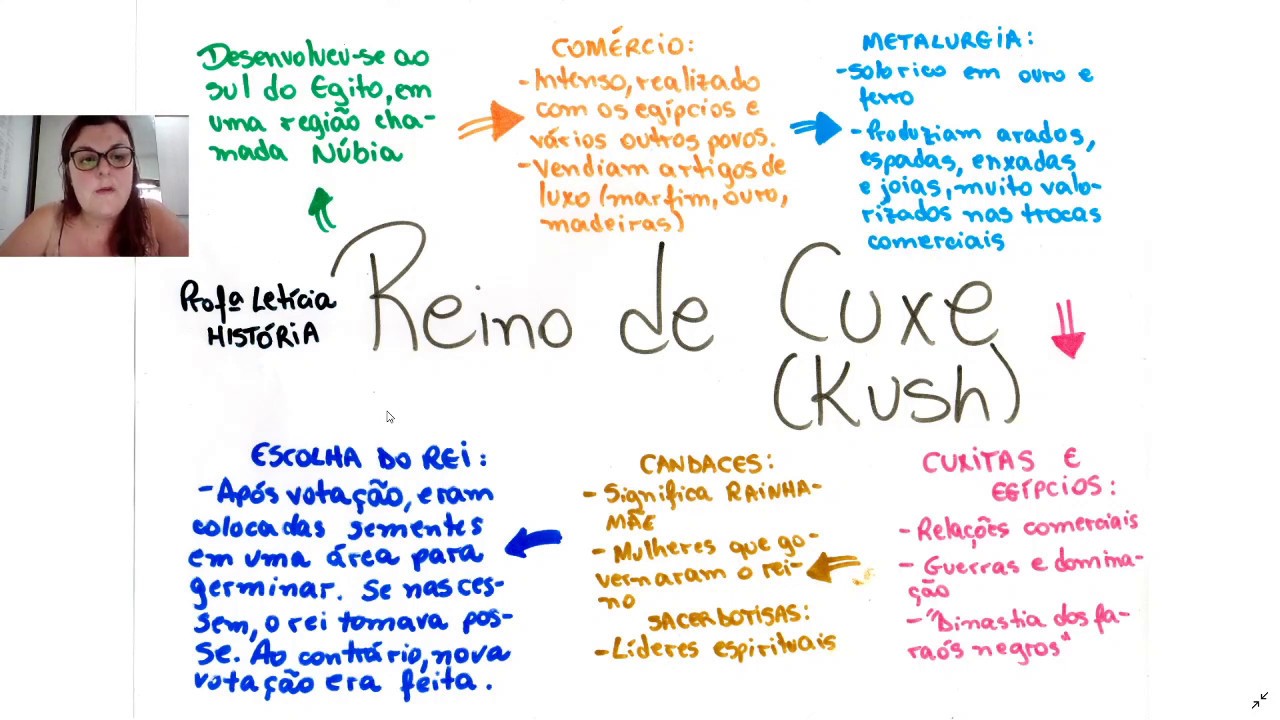 Desenvolveu-se ao
sul do Egito, em
uma região cha-
mada Núbia
COMÉRCIO:
- Intenso, realizado
com os egípcios e
vários outros povos.
- Vendiam artigos de
luxo (marfim, ouro,
madeiras)
METALURGIA:
- Solo rico em ouro e
ferro
- Produziam arados,
espadas, enxadas
e joias, muito valo-
rizados nas trocas
comerciais
Profª Letícia
HISTÓRIA
Reino de Cuxe
(Kush)
CUXITAS E
EGÍPCIOS:
- Relações comerciais
- Guerras e domina-
ção
- "Dinastia dos fa-
raós negros"
CANDACES:
- Significa RAINHA-
MÃE
- Mulheres que go-
vernaram o rei-
no
SACERDOTISAS:
- Líderes espirituais
ESCOLHA DO REI:
- Após votação, eram
colocadas sementes
em uma área para
germinar. Se nasces-
sem, o rei tomava pos-
se. Ao contrário, nova
votação era feita.